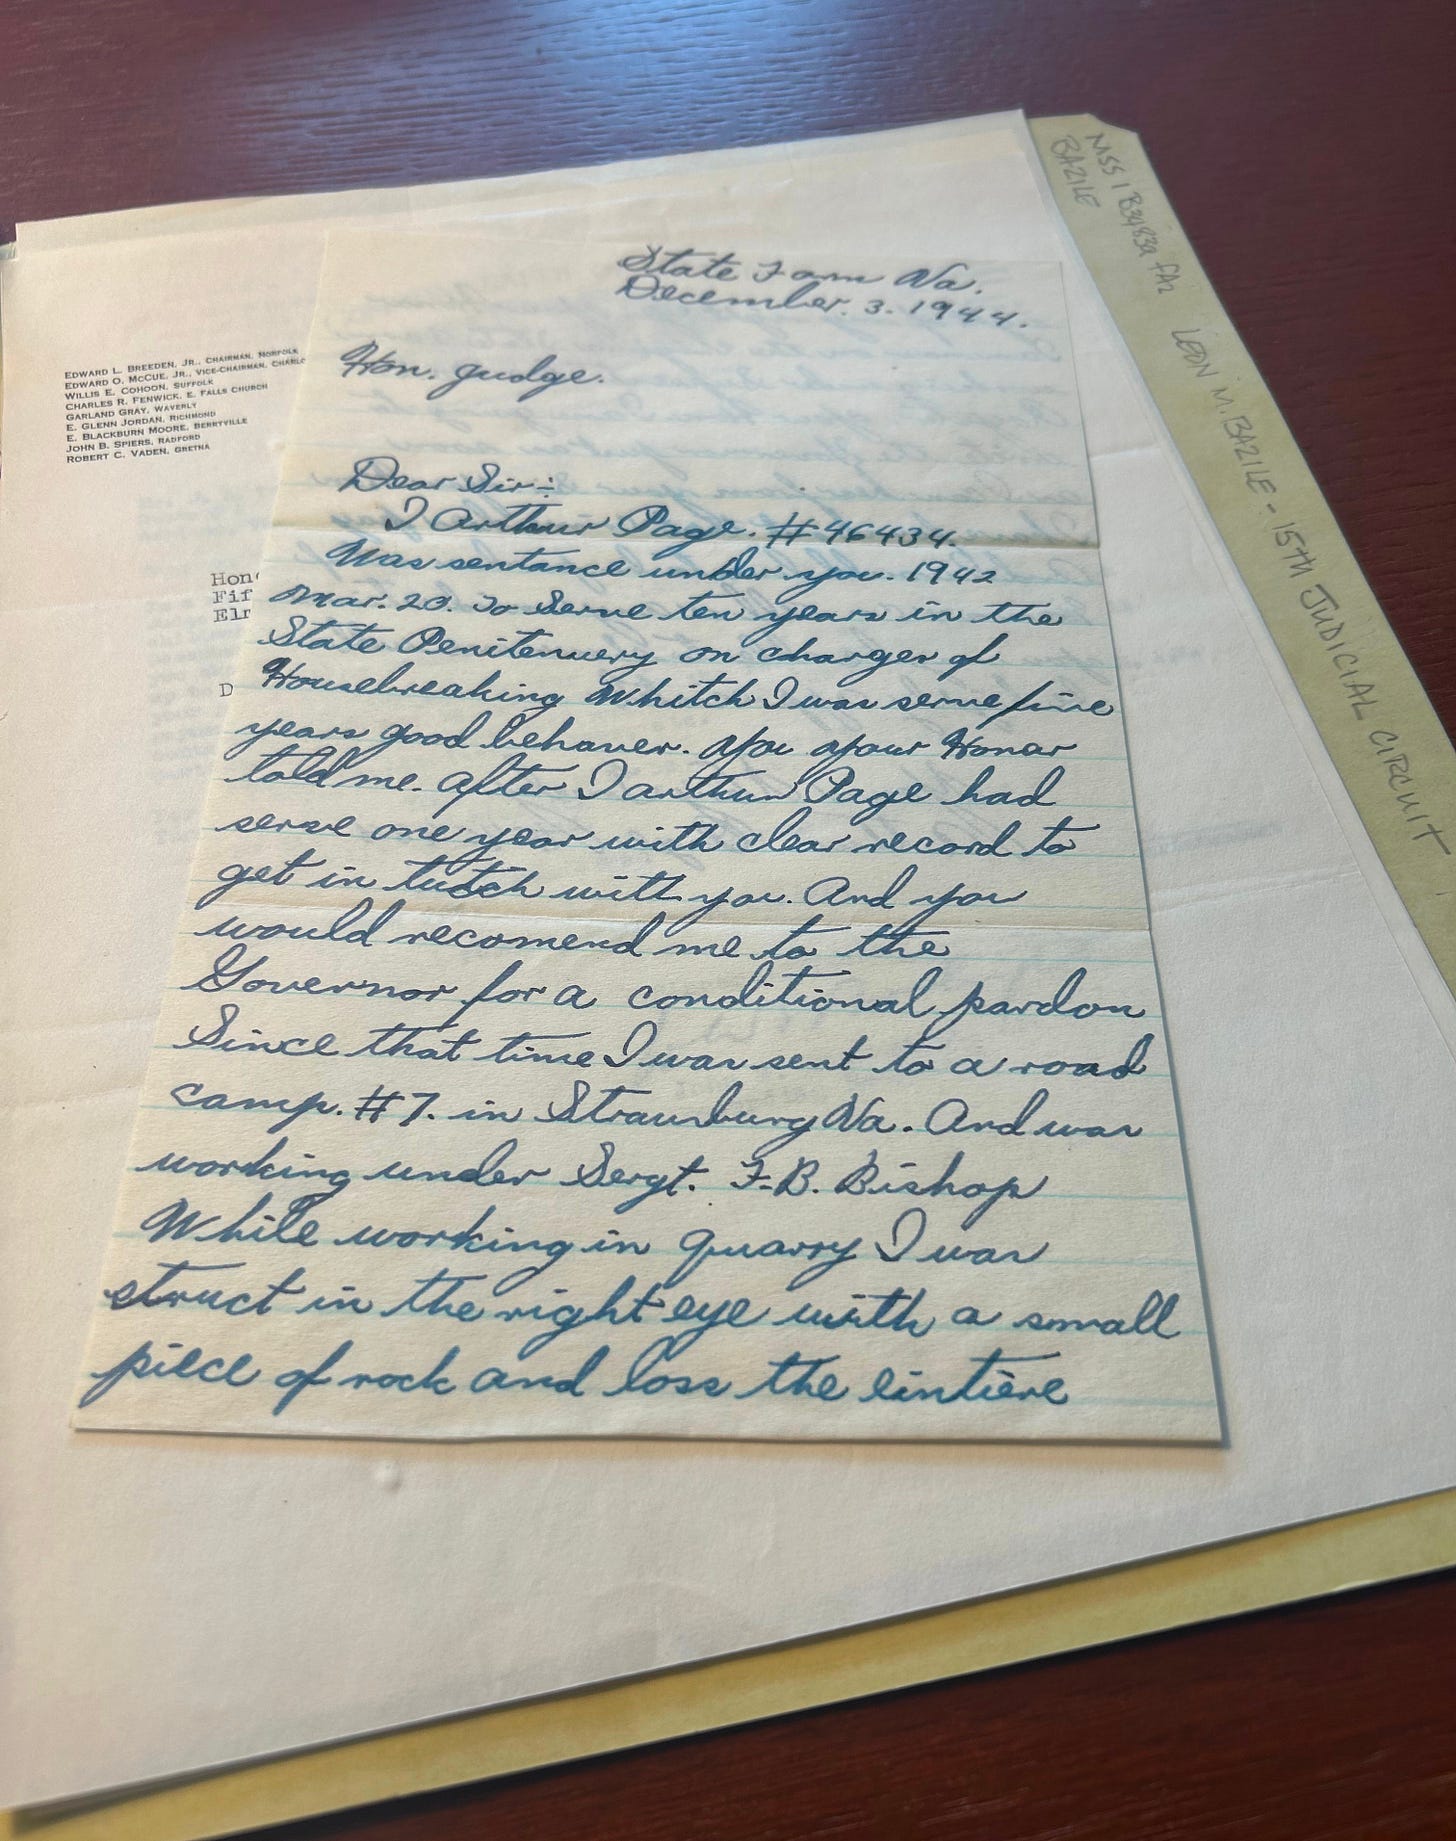 MSS 1 B3483a FA2
BAZILE
LEON M. BAZILE - 15TH JUDICIAL CIRCUIT
EDWARD L. BREEDEN, JR., CHAIRMAN, NORFOLK
EDWARD O. MCCUE, JR., VICE-CHAIRMAN, CHARLO
WILLIS E. COHOON, SUFFOLK
CHARLES R. FENWICK, E. FALLS CHURCH
GARLAND GRAY, WAVERLY
E. GLENN JORDAN, RICHMOND
E. BLACKBURN MOORE, BERRYVILLE
JOHN B. SPIERS, RADFORD
ROBERT C. VADEN, GRETNA
Hon
Fif
Elm
D
State Farm Va.
December. 3. 1944.
Hon. Judge.
Dear Sir:-
I Arthur Page. #46434.
Was sentance under you. 1942
Mar. 20. To Serve ten years in the
State Penitenuery on charges of
Housebreaking Whitch I was serve five
years good behaver. You your Honor
told me. after I arthur Page had
serve one year with clear record to
get in tutch with you. And you
would recomend me to the
Governor for a conditional pardon
Since that time I was sent to a road
camp. #7. in Strausburg Va. And was
working under Sergt. F.B. Bishop
While working in quarry I was
struct in the right eye with a small
piece of rock and loss the eintiere